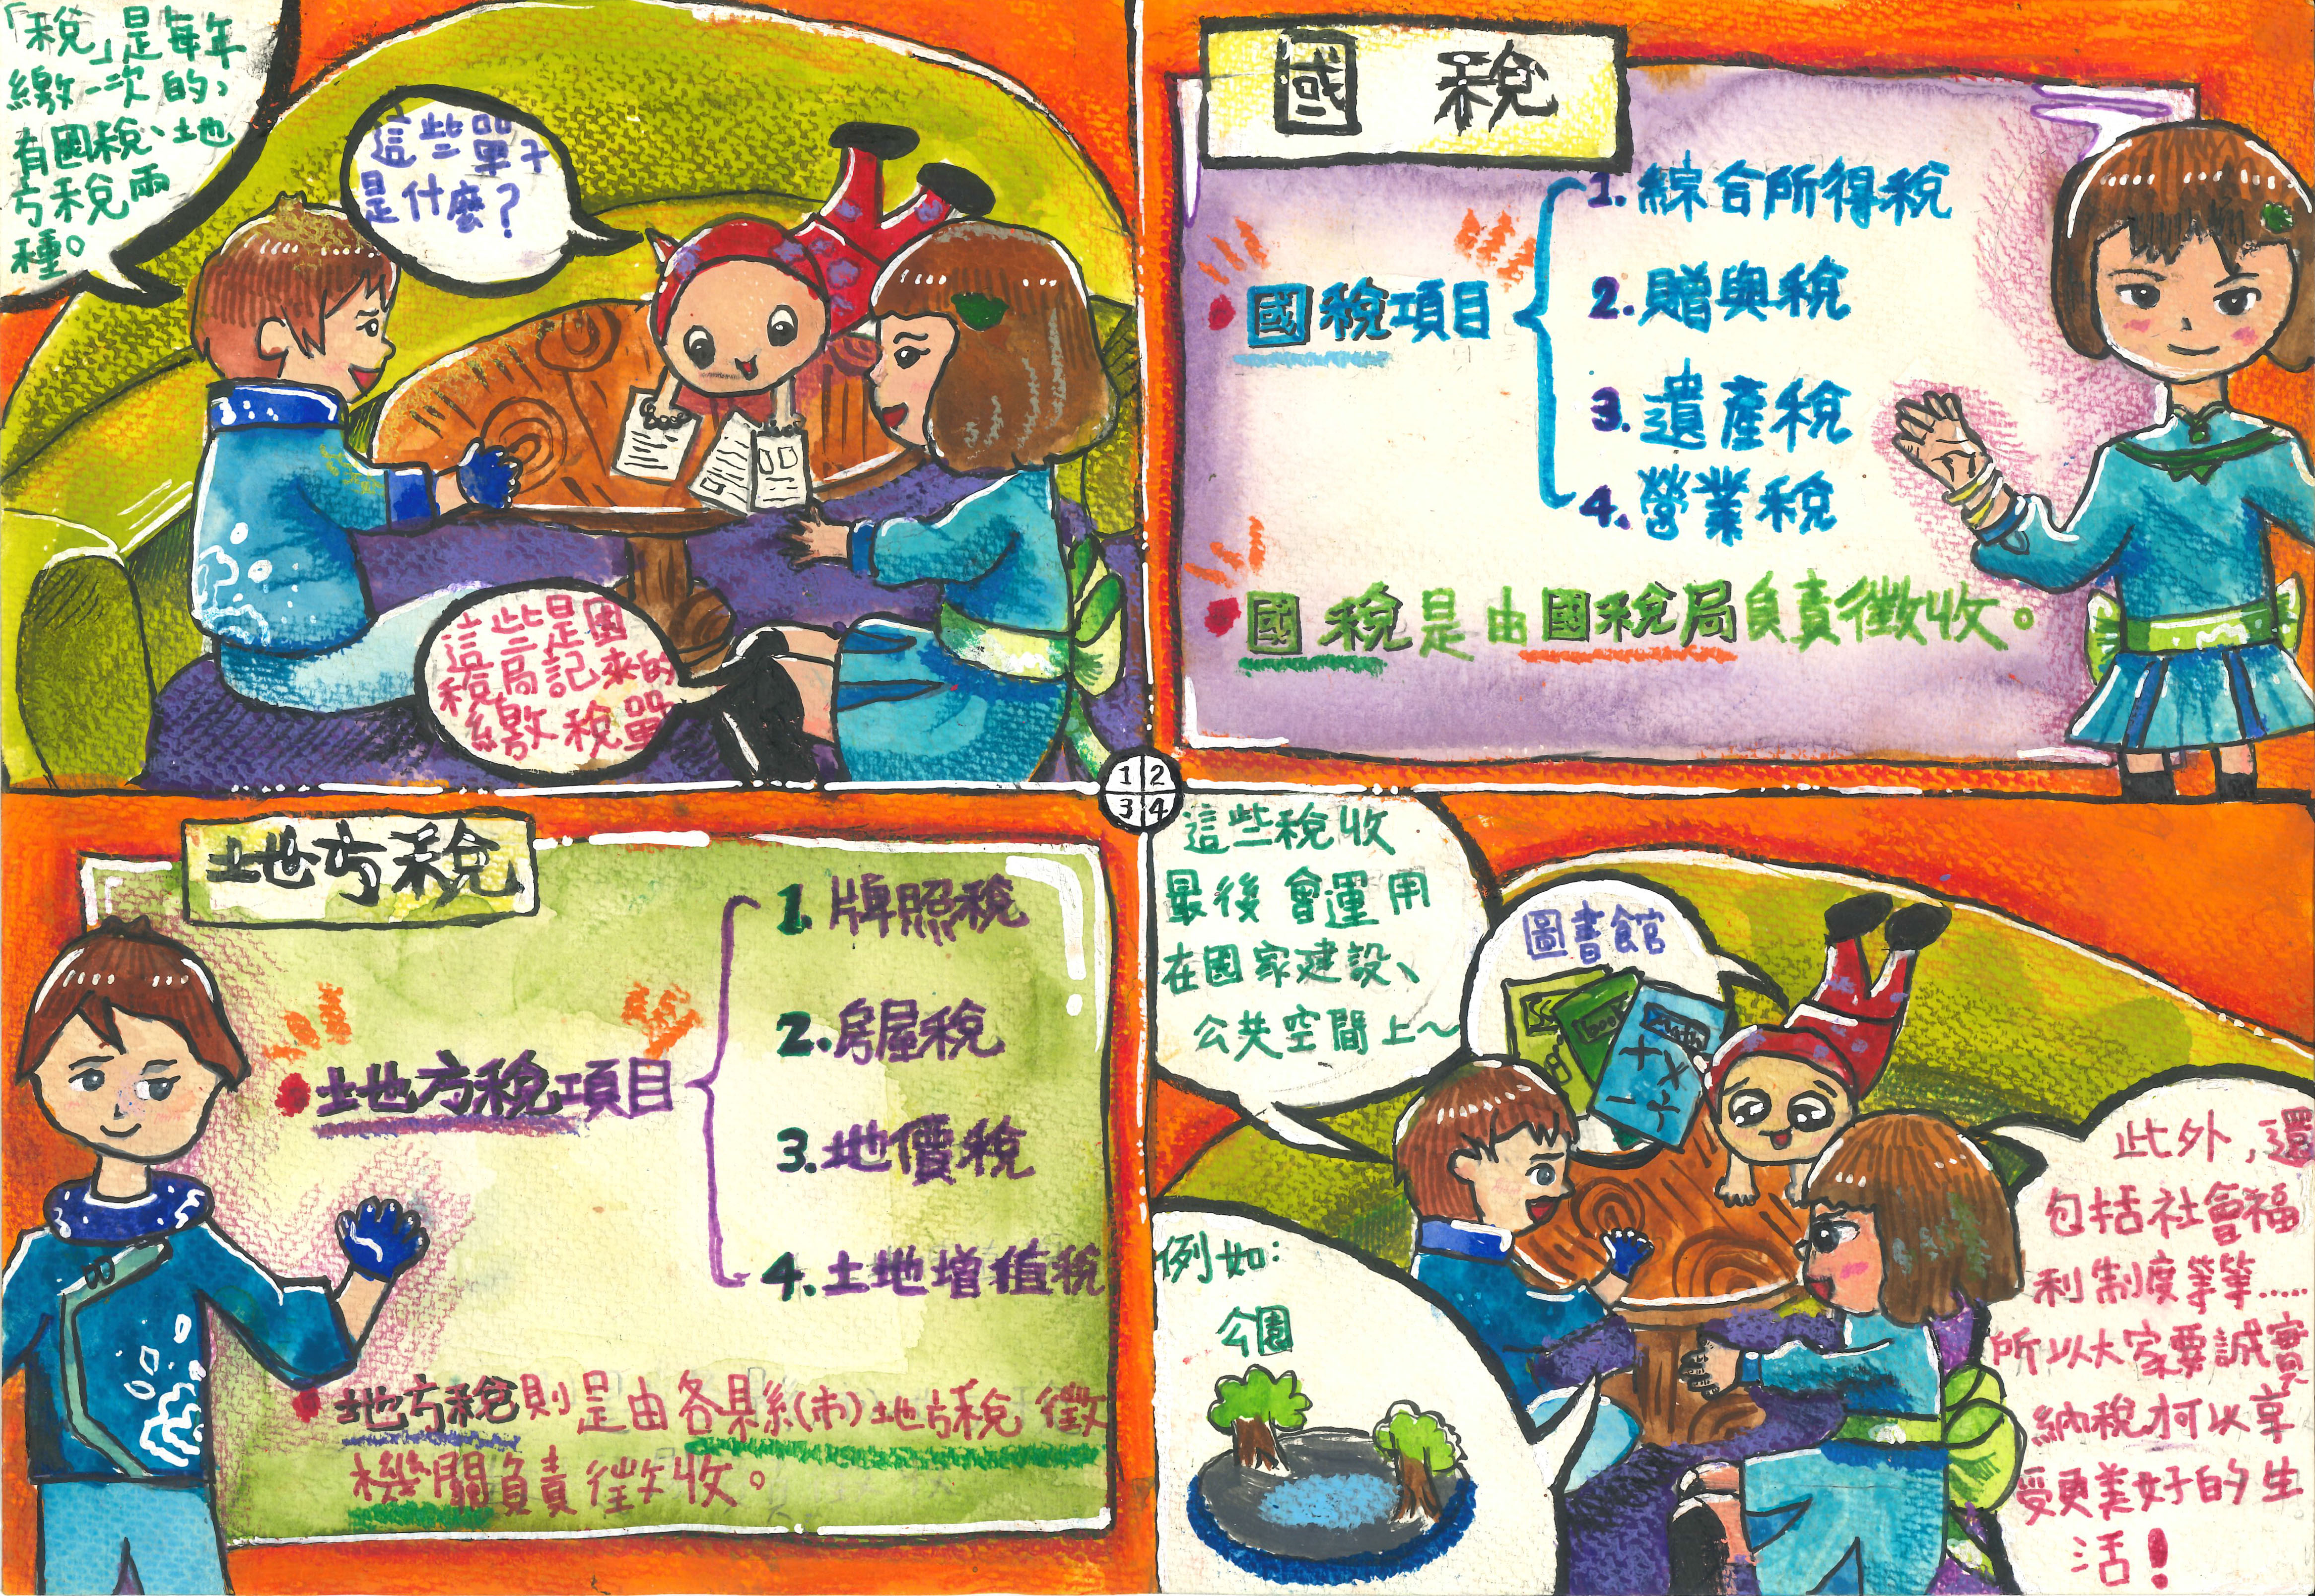 「稅」是每年
繳一次的，
有國稅、地
方稅兩
種。
這些單子
是什麼？
這些是國
稅局記來的
繳稅單
國 稅
國稅項目
1. 綜合所得稅
2. 贈與稅
3. 遺產稅
4. 營業稅
國稅是由國稅局負責徵收。
1 2
3 4
地方稅
地方稅項目
1. 牌照稅
2. 房屋稅
3. 地價稅
4. 土地增值稅
地方稅則是由各縣(市)地方稅 徵
機關負責徵收。
這些稅收
最後會運用
在國家建設、
公共空間上～
圖書館
例如：
公園
此外，還
包括社會福
利制度等等……
所以大家要誠實
納稅才可以享
受更美好的生
活！